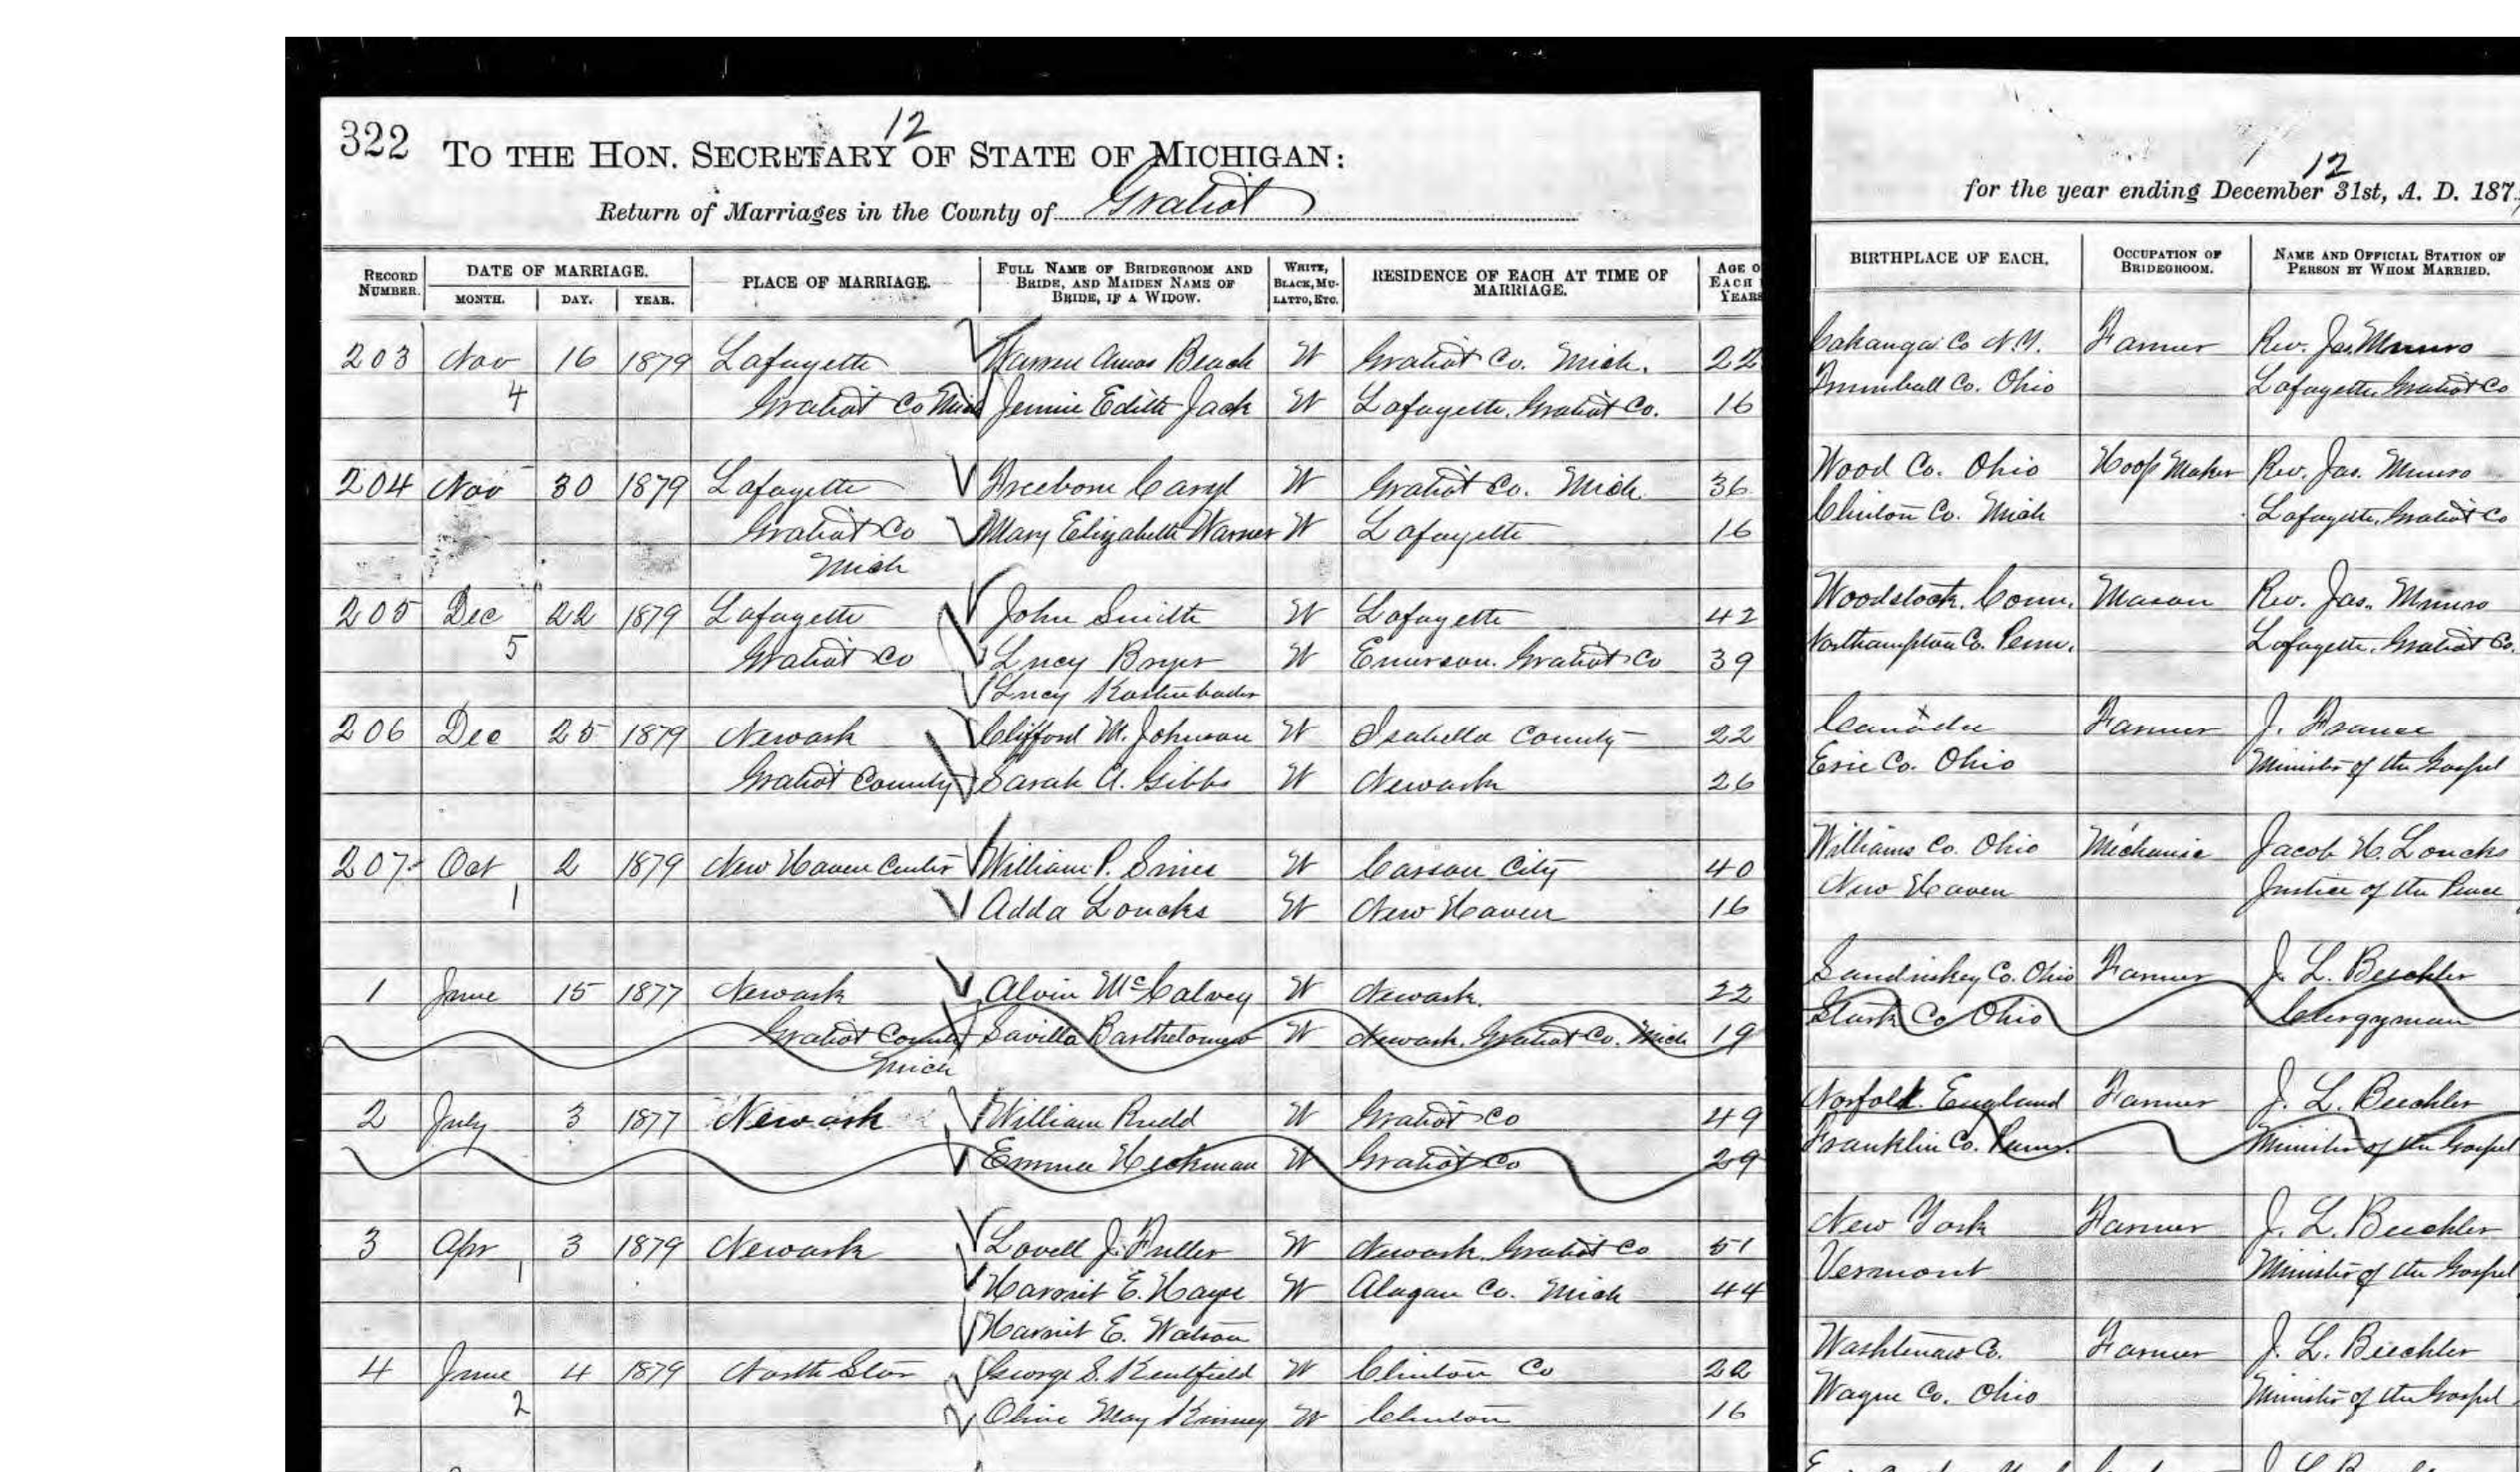 322
12
TO THE HON. SECRETARY OF STATE OF MICHIGAN:
Return of Marriages in the County of Gratiot
RECORD NUMBER. DATE OF MARRIAGE. MONTH. DAY. YEAR. PLACE OF MARRIAGE. FULL NAME OF BRIDEGROOM AND BRIDE, AND MAIDEN NAME OF BRIDE, IF A WIDOW. WHITE, BLACK, MULATTO, ETC. RESIDENCE OF EACH AT TIME OF MARRIAGE. AGE O EACH YEARS
203 Nov 16 1879 Lafayette Warren Amos Beach W Gratiot Co. Mich. 22
4 Gratiot Co Mich Jennie Edith Jack W Lafayette, Gratiot Co. 16
204 Nov 30 1879 Lafayette Freeborn Caryl W Gratiot Co. Mich 36
Gratiot Co Mary Elizabeth Warner W Lafayette 16
Mich
205 Dec 22 1879 Lafayette John Smith W Lafayette 42
5 Gratiot Co Lucy Boyer W Emerson. Gratiot Co 39
Lucy
206 Dec 25 1879 Newark Clifford M. Johnson W Isabella County 22
Gratiot County Sarah A. Gibbs W Newark 26
207 Oct 2 1879 New Haven Center William P. W Carson City 40
1 Adda Loucks W New Haven 16
1 June 15 1877 Newark Alvin McCalvey W Newark. 22
Gratiot County Savilla Bartholomew W Newark, Gratiot Co. Mich 19
Mich
2 July 3 1877 Newark William Rudd W Gratiot Co 49
Emma Heckman W Gratiot Co 29
3 Apr 3 1879 Newark Lovell J. Fuller W Newark, Gratiot Co 51
1 Harriet E. Hayse W Alagan Co. Mich 44
Harriet E. Watson
4 June 4 1879 North Star George S. Kentfield W Clinton Co 22
2 Olive May Kinney W Clinton 16
12
for the year ending December 31st, A. D. 187
BIRTHPLACE OF EACH. OCCUPATION OF BRIDEGROOM. NAME AND OFFICIAL STATION OF PERSON BY WHOM MARRIED.
Co N.Y. Farmer Rev. Jas. Munro
Trumball Co. Ohio Lafayette, Gratiot Co
Wood Co. Ohio Hoop Maker Rev. Jas. Munro
Clinton Co. Mich Lafayette, Gratiot Co
Woodstock, Conn. Mason Rev. Jas. Munro
Northampton Co. Penn. Lafayette, Gratiot Co.
Canada Farmer J. France
Erie Co. Ohio Minister of the Gospel
Williams Co. Ohio Mechanic Jacob H. Loucks
New Haven Justice of the Peace
Sandusky Co. Ohio Farmer J. L. Beechler
Stark Co Ohio Clergyman
Norfolk England Farmer J. L. Beechler
Franklin Co. Penn. Minister of the Gospel
New York Farmer J. L. Beechler
Vermont Minister of the Gospel
Washtenaw Co. Farmer J. L. Beechler
Wayne Co. Ohio Minister of the Gospel